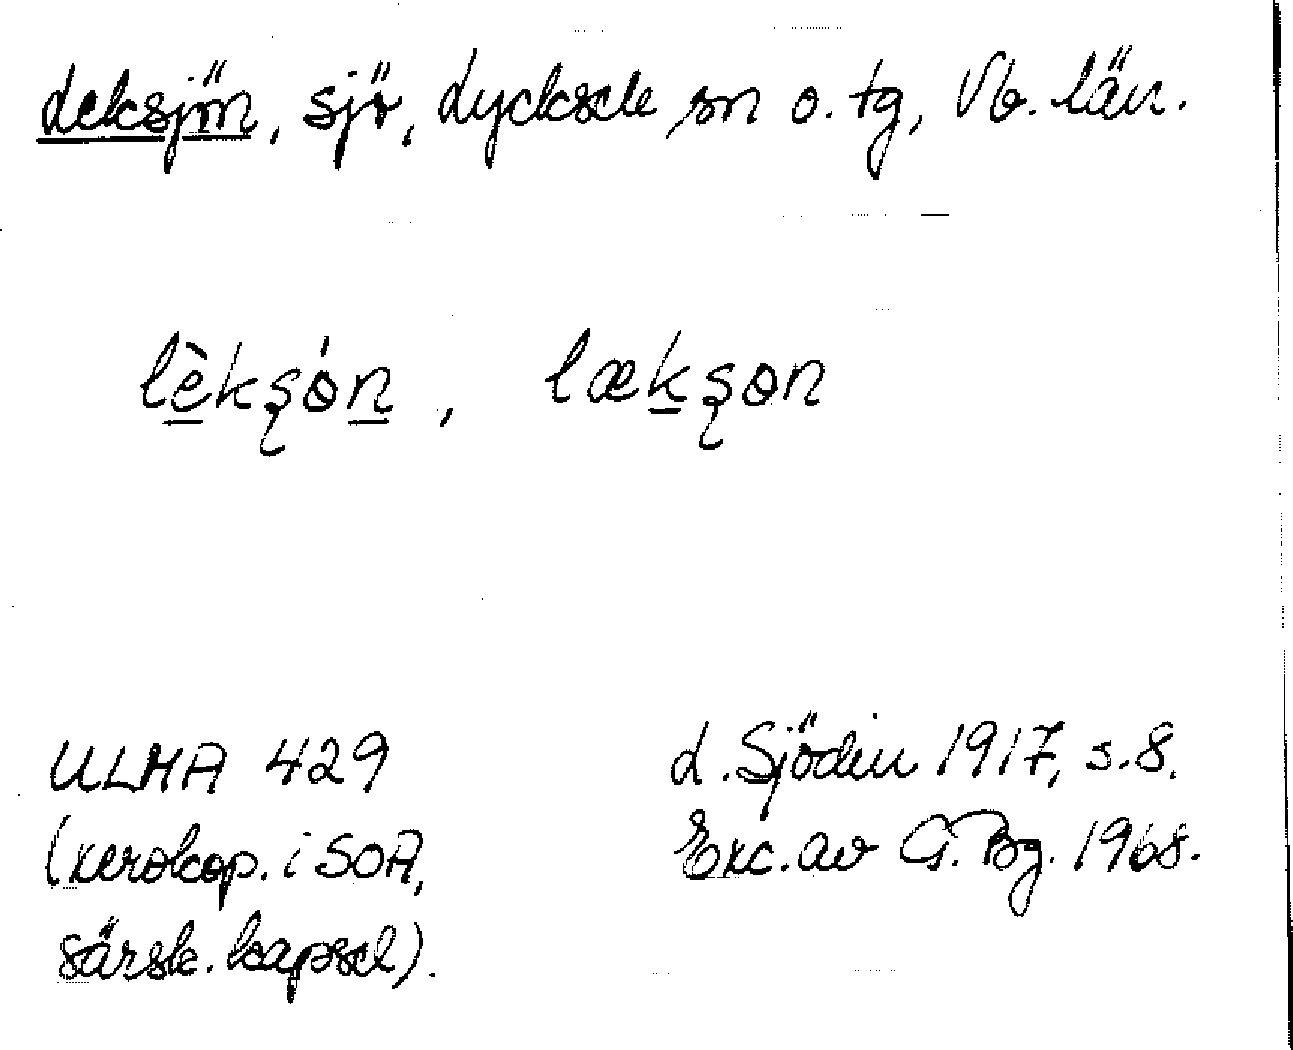 Leksjön, sjö, Lycksele sn o. tg, Vb. län.
lèkʂɵ́n, lækʂɵn
ULMA 429
(xerokop. i SOA,
särsk. kapsel).
L. Sjödin 1917, s. 8.
Exc. av G. Bg. 1968.